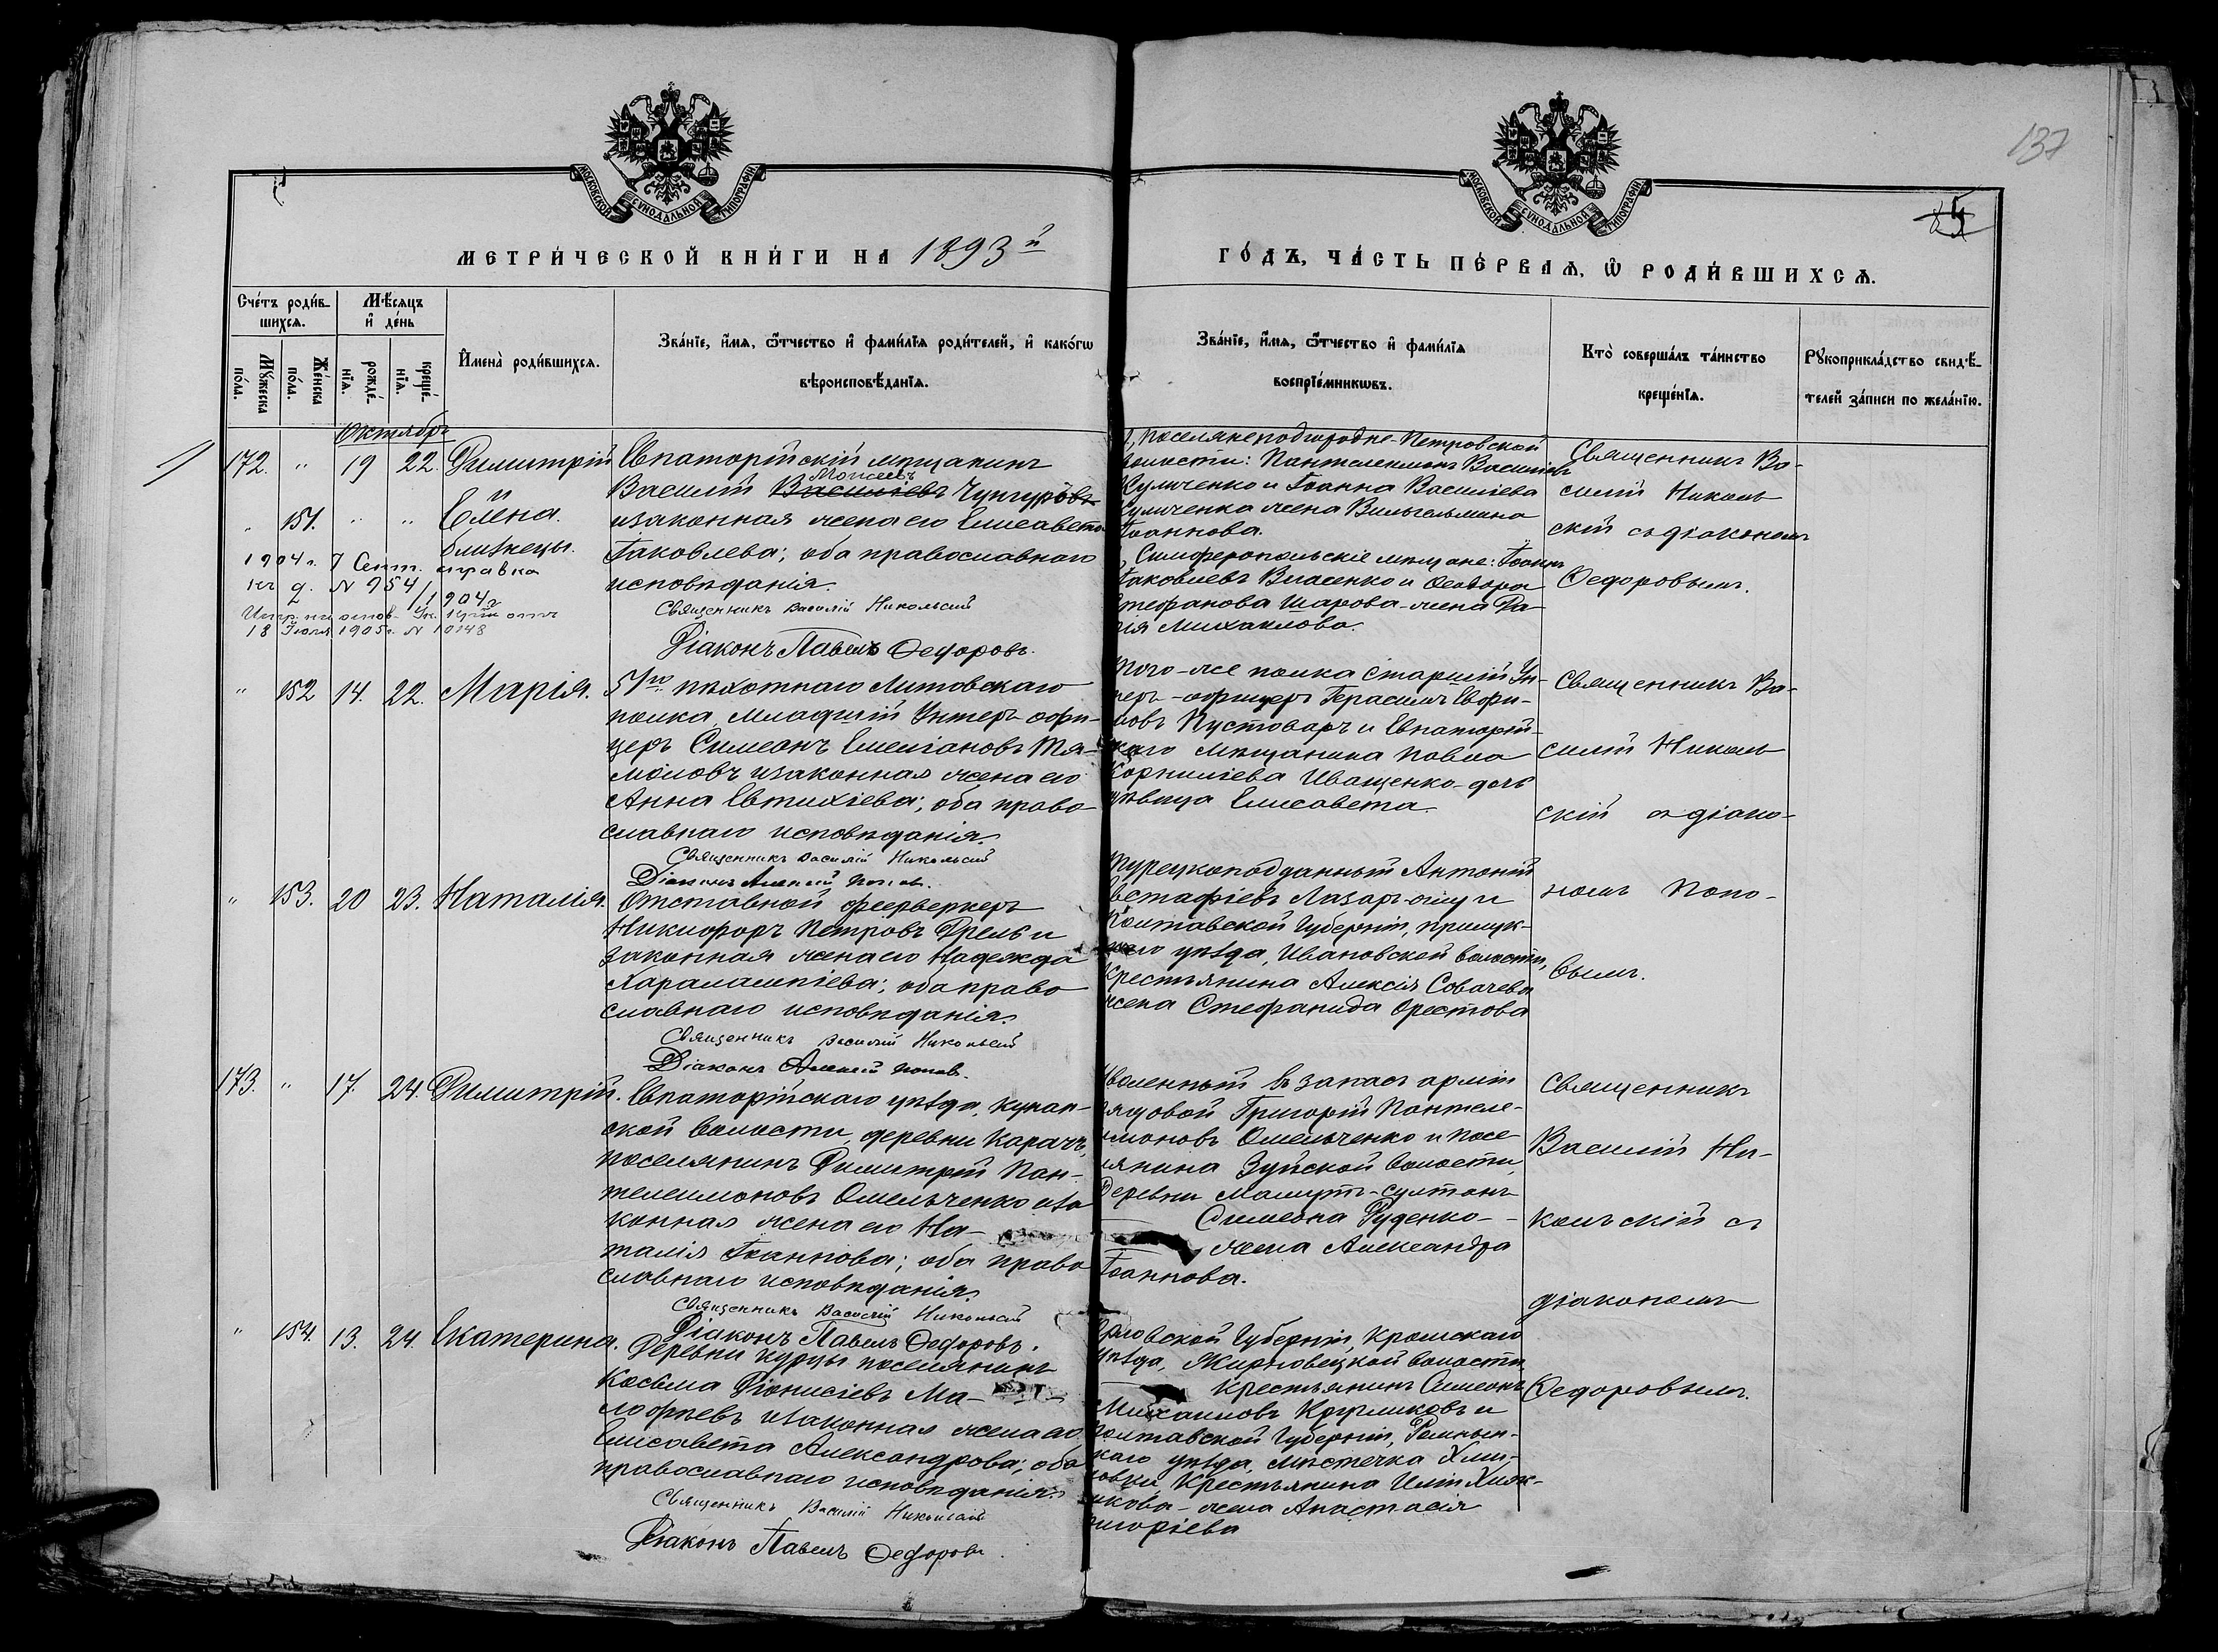 137
85
МОСКОВСКОЙ СУНОДАЛЬНОЙ ТИПОГРАФІИ
МОСКОВСКОЙ СУНОДАЛЬНОЙ ТИПОГРАФІИ
МЕТРИ́ЧЕСКОЙ КНИ́ГИ НА 1893й
ГО́ДЪ, ЧА́СТЬ ПЕ́РВАѦ, Ѡ҆ РОДИ́ВШИХСѦ.
Сче́тъ роди́в-
шихсѧ.
Мѣ́сѧцъ
и҆ де́нь
Мꙋ́жеска
по́ла.
Же́нска
по́ла.
рожде́-
нїѧ.
креще́-
нїѧ.
И҆мена̀ роди́вшихсѧ.
Зва́нїе, и҆́мѧ, ѻ҆́тчество и҆ фами́лїѧ роди́телей, и҆ како́гѡ
вѣроисповѣ́данїѧ.
Зва́нїе, и҆́мѧ, ѻ҆́тчество и҆ фами́лїѧ
воспрїе́мникѡвъ.
Кто̀ соверша́лъ та́инство
креще́нїѧ.
Рꙋкоприкла́дство свидѣ́-
телей за́писи по жела́нїю.
Октябрь
172. " 19 22. Димитрій
" 151. " " Елена.
близнецы.
1904 г. 7 Сент. справка
къ д. № 954/1904 г
18 Іюля 1905 г. № 10148
Евпаторійскій мѣщанинъ
Моисеевъ
Василій Василіевъ Чунгуровъ
и законная жена его Елисавета
Іаковлева; оба православнаго
исповѣданія.
Священникъ Василій Никольскій
Діаконъ Павелъ Федоровъ.
поселяне подгородне-Петровской
волости: Пантелеимонъ Василіевъ
Куличенко и Іоанна Василіева
Куличенка жена Вильгельмина
Іоаннова.
Симферопольскіе мѣщане: Іоаннъ
Іаковлевъ Власенко и Феодора
Стефанова Шарова жена Да-
рія Михаилова.
Священникъ Ва-
силій Николь
скій съ діакономъ
Федоровымъ.
" 152 14. 22. Марія.
51го пѣхотнаго Литовскаго
полка Младшій Унтеръ-офи-
церъ Симеонъ Емеліановъ Тя-
моловъ и законная жена его
Анна Евтихіева; оба право-
славнаго исповѣданія.
Священникъ Василій Никольскій
Діаконъ Алексій Поповъ.
того-же полка старшій Ун-
теръ-офицеръ Герасимъ Евфи-
мовъ Пустоваръ и Евпаторій-
скаго мѣщанина Павла
Корниліева Иващенко-дочь
дѣвица Елисавета.
Священникъ Ва-
силій Николь
скій съ діако-
номъ Попо-
вымъ.
" 153. 20 23. Наталія.
Отставной фейерверкеръ
Никифоръ Петровъ Дрель и
законная жена его Надежда
Харалампіева; оба право
славнаго исповѣданія.
Священникъ Василій Никольскій
Діаконъ Алексій Поповъ.
Турецкоподданный Антоній
Евстафіевъ Лазаръ-оглу и
Полтавской Губерніи, прилук-
скаго уѣзда, Ивановской волости,
крестьянина Алексія Собачева
жена Стефанида Орестова
173. " 17. 24. Димитрій.
Евпаторійскаго уѣзда, кунан-
ской волости, деревни Карачъ,
поселянинъ Димитрій Пан-
телеимоновъ Омельченко и за
конная жена его На-
талія Іоаннова; оба право
славнаго исповѣданія.
Священникъ Василій Никольскій
Діаконъ Павелъ Федоровъ.
уволенный въ запасъ арміи
рядовой Григорій Пантеле-
имоновъ Омельченко и посе
лянина Зуйской волости,
деревни Мамутъ-султанъ
Симеона Руденко-
жена Александра
Іоаннова.
Священникъ
Василій Ни-
кольскій съ
діакономъ
Федоровымъ.
" 154. 13. 24. Екатерина.
Деревни Курцы поселянинъ
Косьма Діонисіевъ Ма-
лофѣевъ и законная жена его
Елисавета Александрова; оба
православнаго исповѣданія.
Священникъ Василій Никольскій
Діаконъ Павелъ Федоровъ.
Орловской Губерніи, Кромскаго
уѣзда, волости
крестьянинъ Симеонъ
Михаиловъ Кругликовъ и
Полтавской Губерніи, Роменн-
скаго уѣзда, мѣстечка Хмѣ-
ловки, крестьянина Иліи
жена Анастасія
Григоріева